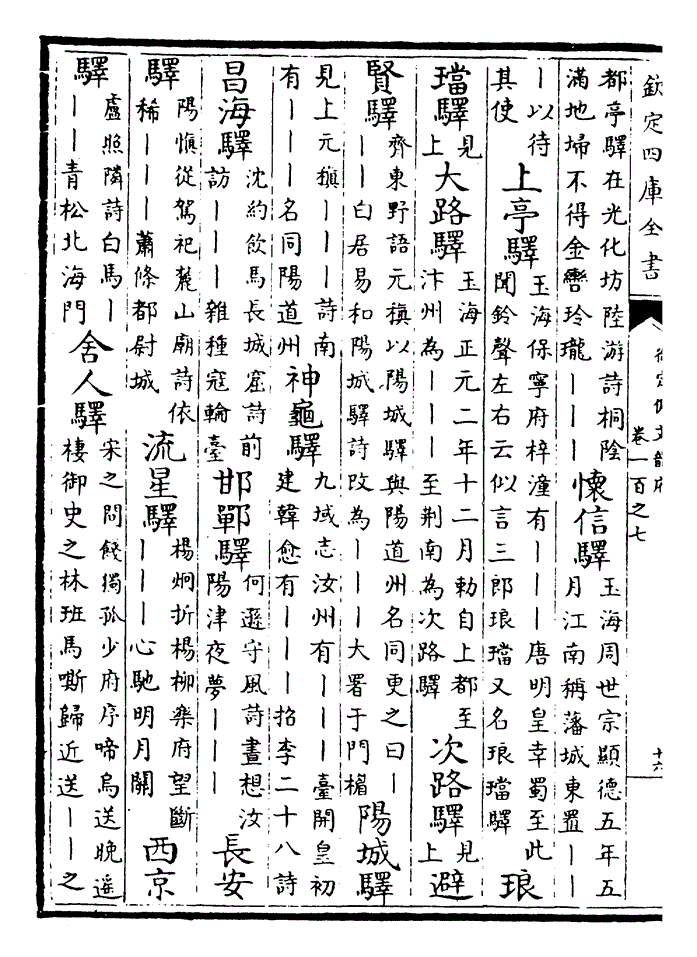 欽定四庫全書 御定佩文韻府 卷一百之七 十六
都亭驛在光化坊陸游詩桐陰
滿地埽不得金轡玲瓏｜｜｜
懷信驛
玉海周世宗顯德五年五
月江南稱藩城東置｜｜
｜以待
其使
上亭驛
玉海保寧府梓潼有｜｜｜唐明皇幸蜀至此
聞鈴聲左右云似言三郎琅璫又名琅璫驛
琅
璫驛
見
上
大路驛
玉海正元二年十二月勅自上都至
汴州為｜｜｜至荆南為次路驛
次路驛
見
上
避
賢驛
齊東野語元稹以陽城驛與陽道州名同更之曰｜
｜｜白居易和陽城驛詩改為｜｜｜大署于門楣
陽城驛
見上元稹｜｜｜詩南
有｜｜｜名同陽道州
神龜驛
九域志汝州有｜｜｜臺開皇初
建韓愈有｜｜｜招李二十八詩
昌海驛
沈約飲馬長城窟詩前
訪｜｜｜雜種寇輪臺
邯鄲驛
何遜守風詩晝想汝
陽津夜夢｜｜｜
長安
驛
陽慎從駕祀麓山廟詩依
稀｜｜｜蕭條都尉城
流星驛
楊炯折楊柳樂府望斷
｜｜｜心馳明月關
西京
驛
盧照隣詩白馬｜
｜｜青松北海門
舍人驛
宋之問餞獨孤少府序啼烏送晚遥
棲御史之林班馬嘶歸近送｜｜之